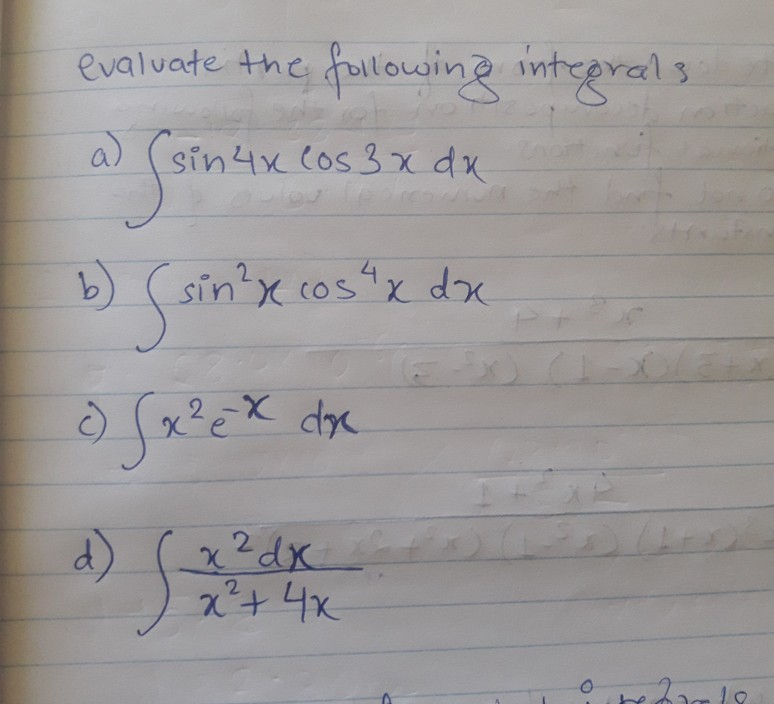 evaluate the following integrals
a) ∫ sin4x cos3x dx
b) ∫ sin²x cos⁴x dx
c) ∫ x²e⁻ˣ dx
d) ∫ x²dx / x²+4x